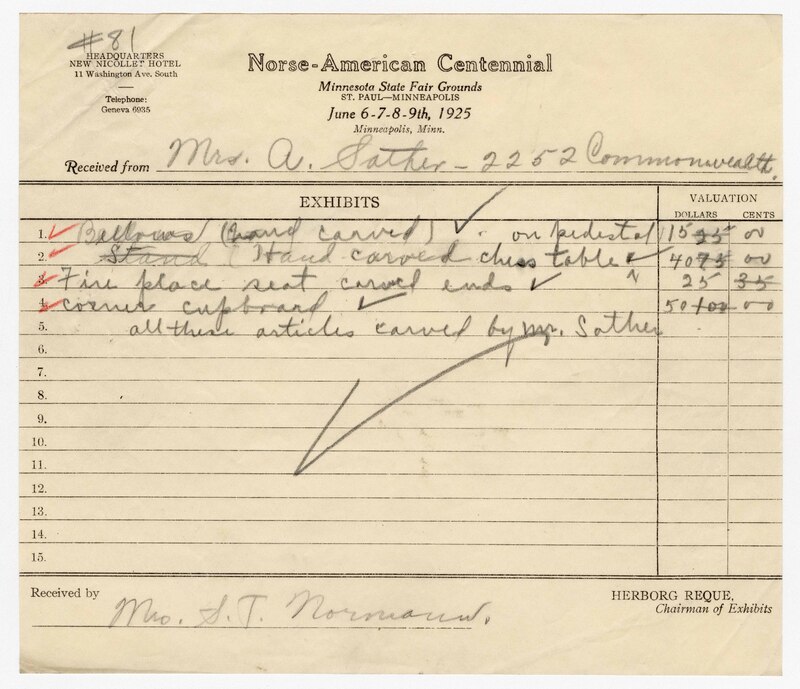 #81
HEADQUARTERS
NEW NICOLLET HOTEL
11 Washington Ave. South
Telephone:
Geneva 6935
Norse-American Centennial
Minnesota State Fair Grounds
ST. PAUL—MINNEAPOLIS
June 6-7-8-9th, 1925
Minneapolis, Minn.
Received from Mrs. A. Sather - 2252 Commonwealth.
EXHIBITS VALUATION
DOLLARS CENTS
1. Bellows (hand carved) " on pedestal 15 25 00
2. Stand (Hand carved chess table 40 75 00
3. Fire place seat carved ends " 25 35
4. corner cupboard 50 100 00
5. all these articles carved by Mr. Sather
6.
7.
8.
9.
10.
11.
12.
13.
14.
15.
Received by Mrs. S. T. Normann.
HERBORG REQUE,
Chairman of Exhibits